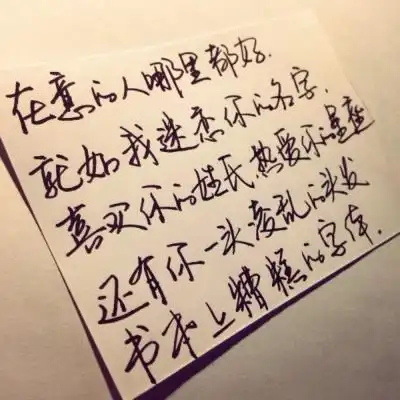 在意的人哪里都好.
就如我迷恋你的名字.
喜欢你的姓氏热爱你的星座
还有你一头凌乱的头发
书本上糟糕的字体.